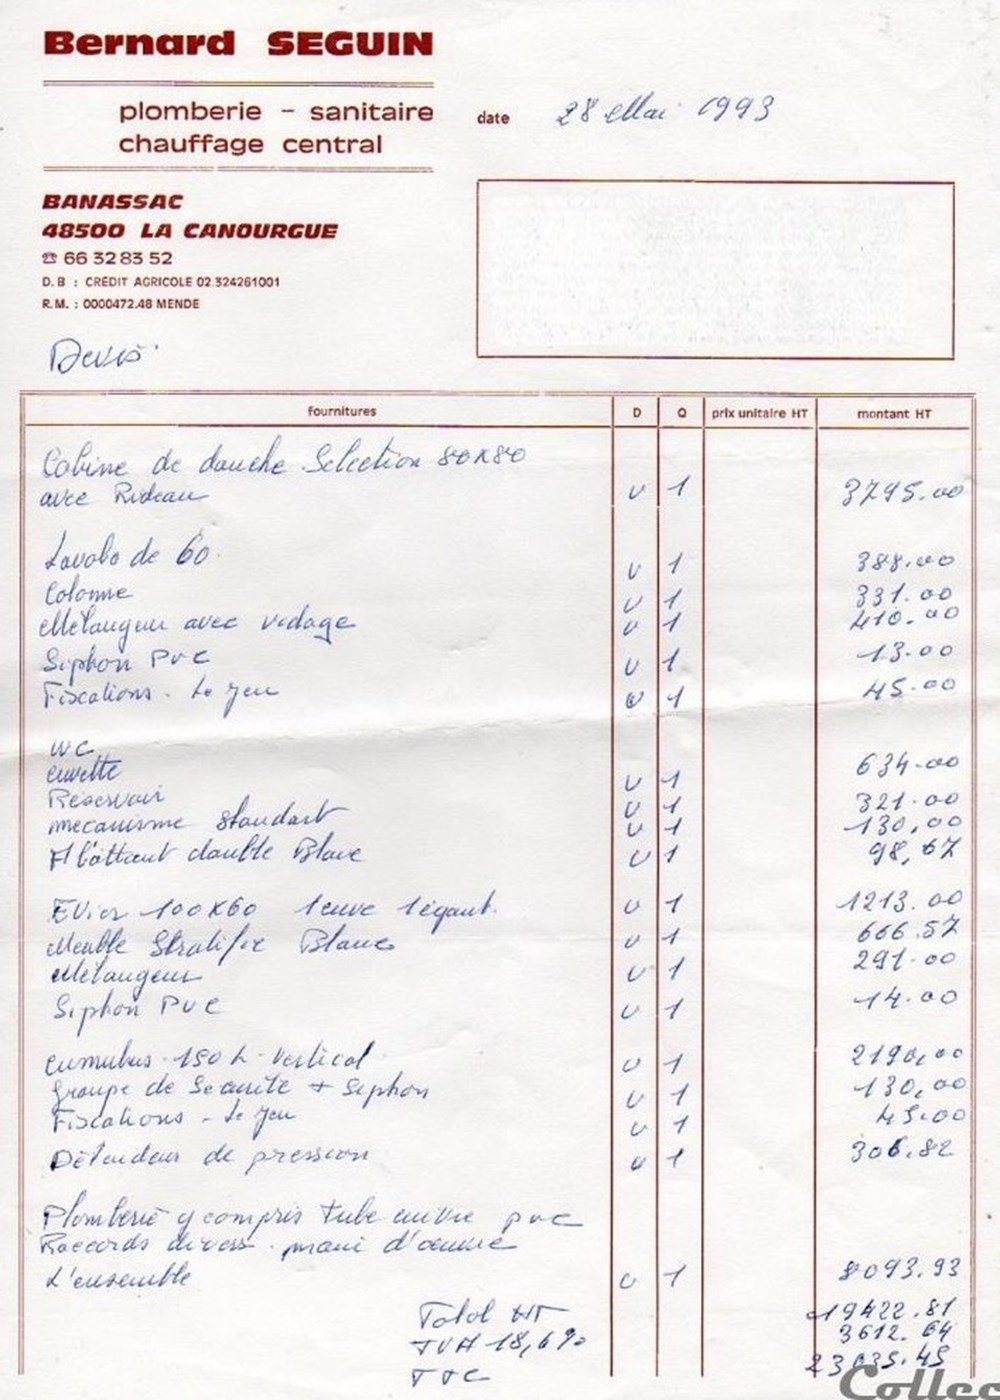 Bernard SEGUIN
plomberie - sanitaire
chauffage central
date 28 Mai 1993
BANASSAC
48500 LA CANOURGUE
☎ 66 32 83 52
D.B : CRÉDIT AGRICOLE 02.324261001
R.M. : 0000472.48 MENDE
Devis
fournitures D Q prix unitaire HT montant HT
Cabine de douche Selection 80x80
avec Rideau U 1 3795.00
Lavabo de 60 U 1 388.00
Colonne U 1 331.00
Mélangeur avec vidage U 1 410.00
Siphon PVC U 1 13.00
Fixations - Le Jeu U 1 45.00
WC
Cuvette U 1 634.00
Réservoir U 1 321.00
mecanisme standart U 1 130,00
Abattant double Blanc U 1 98,67
Evier 100x60 1 cuve 1 égout. U 1 1213.00
Meuble Stratifié Blanc U 1 666.57
Mélangeur U 1 291.00
Siphon PVC U 1 14.00
Cumulus 150 L Vertical U 1 2190,00
Groupe de Sécurité + Siphon U 1 130,00
Fixations - Le Jeu U 1 45.00
Détendeur de pression U 1 306.82
Plomberie y compris tube cuivre PVC
Raccords divers main d'œuvre
L'ensemble U 1 8093.93
Total HT 19422.81
TVA 18,6% 3612.64
TTC 23035.45